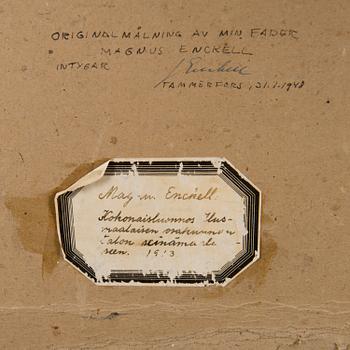 ORIGINALMÅLNING AV MIN FADER
MAGNUS ENCKELL
INTYGAR
J Enckell
TAMMERFORS, 21.1.1948
Mag n Enckell.
Kokonaisluonnos Uus-
maalaisen osakunnan
talon seinämaala-
seen. 1913